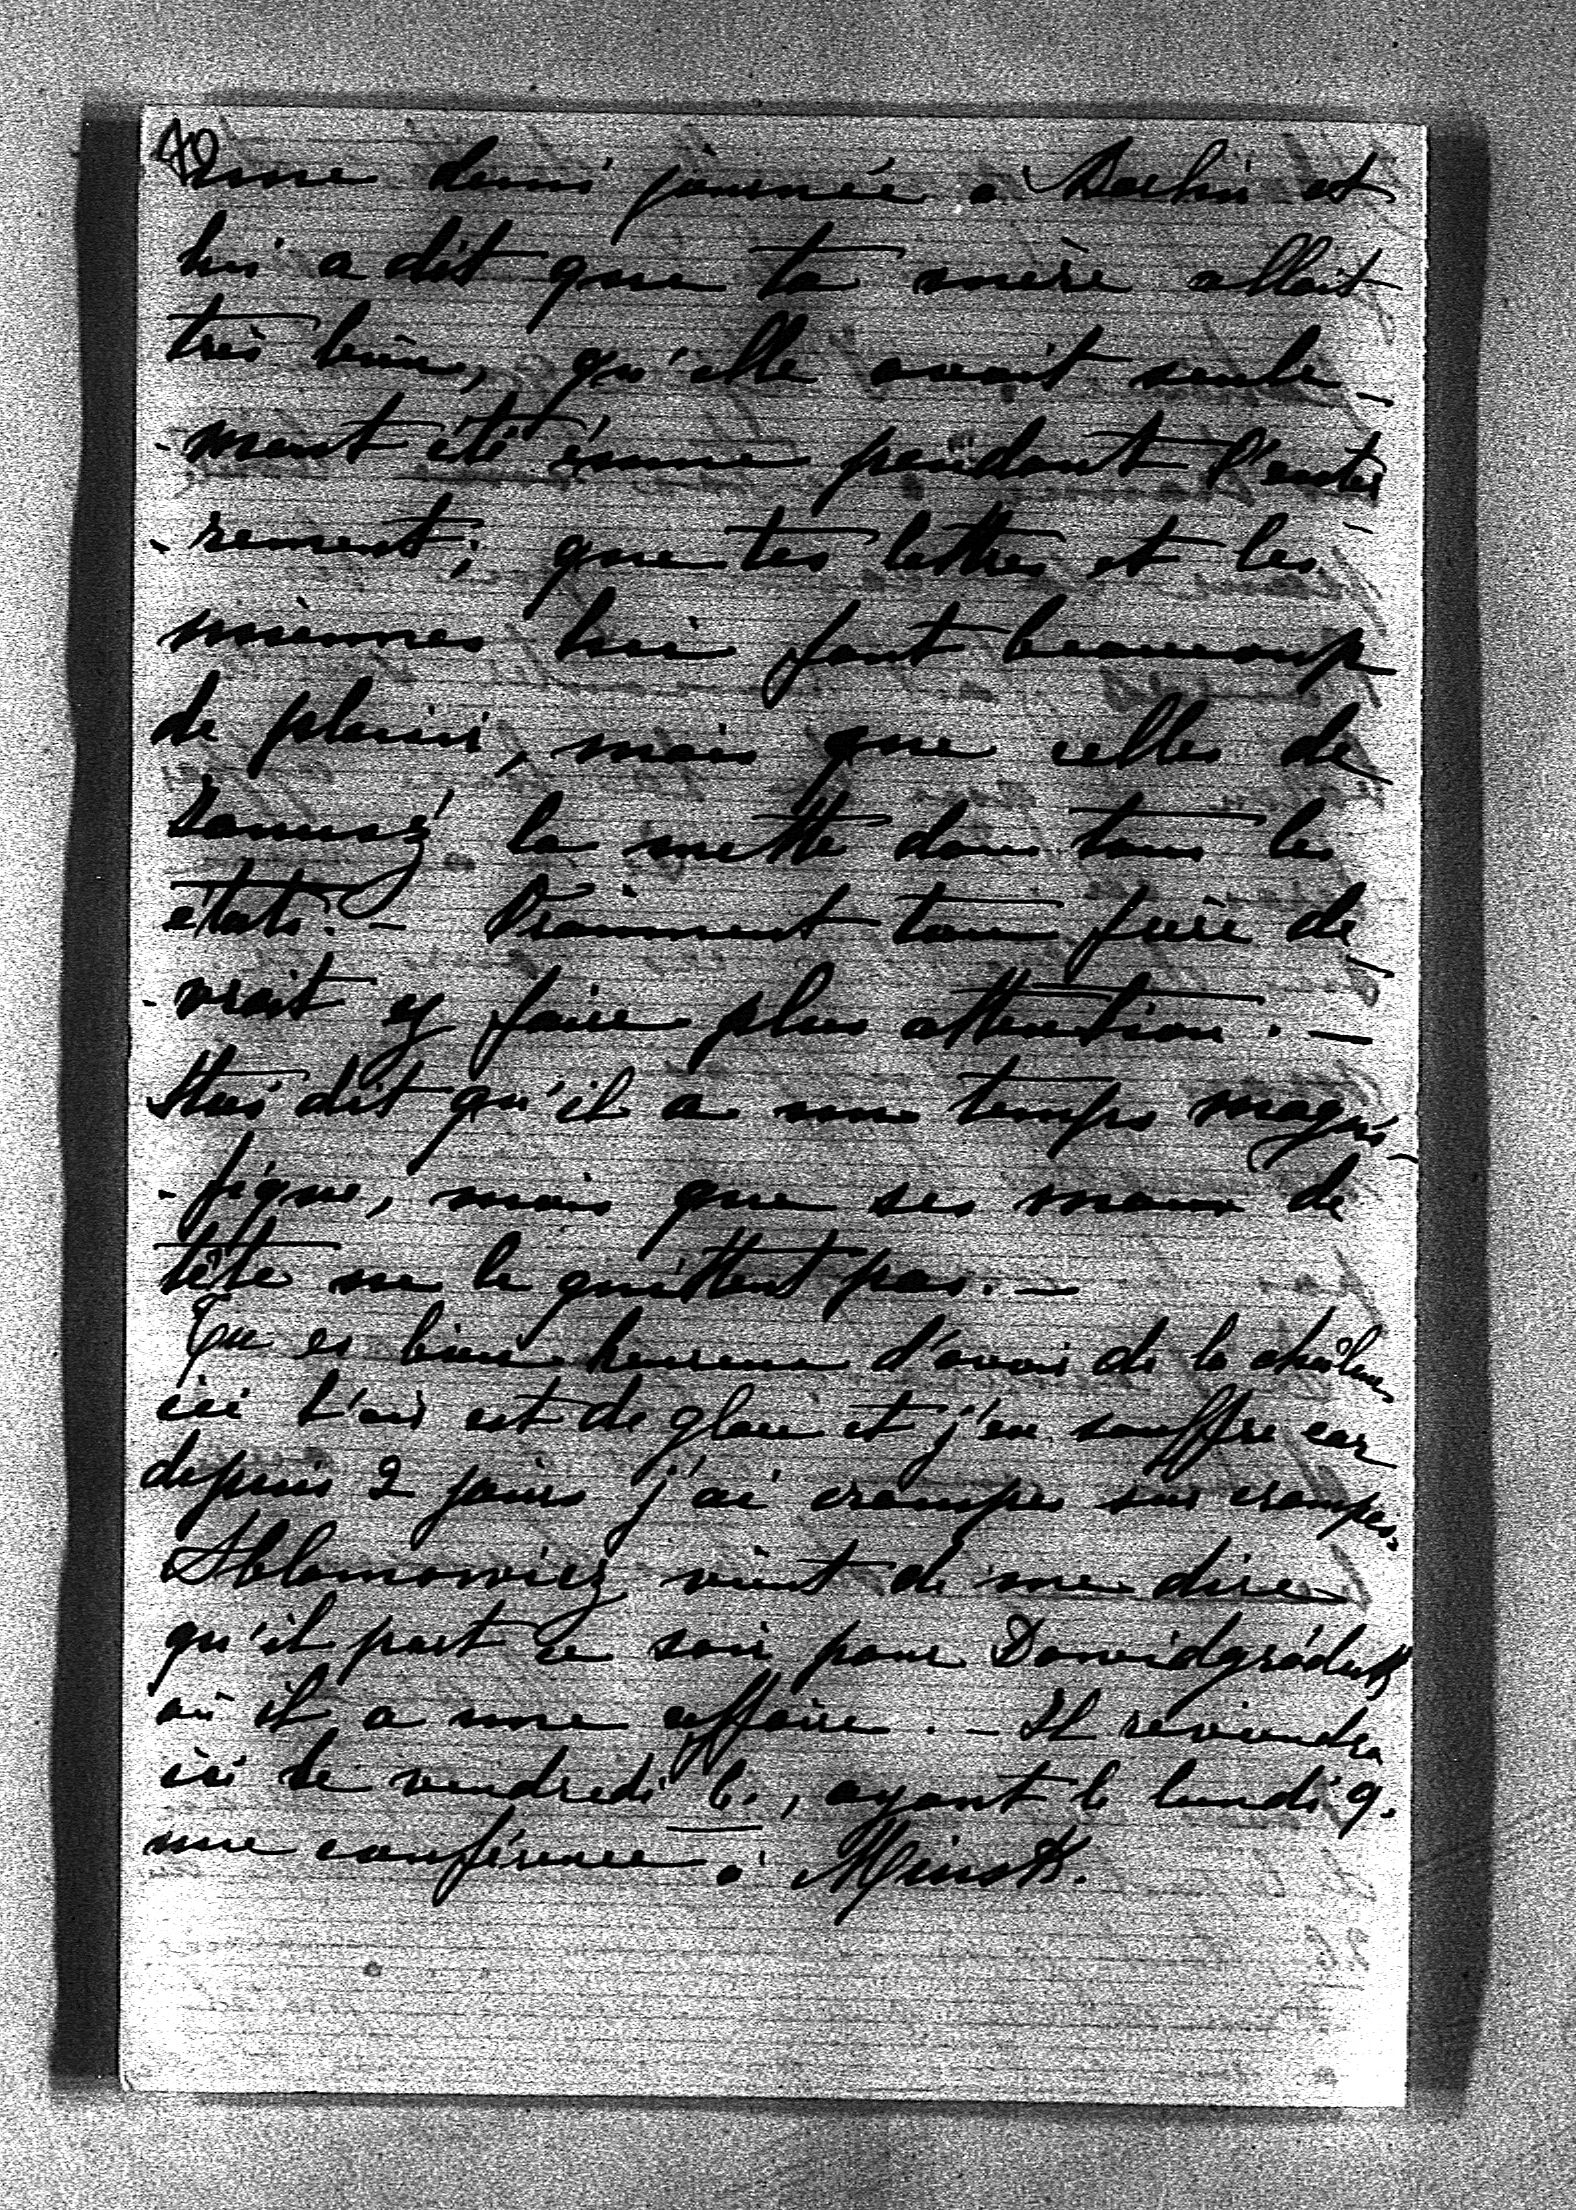 42
une demi journée à Berlin et
lui a dit que ta mère allait
très bien, qu'elle avait seule-
-ment été émue pendant l'enter-
-rement; que tes lettres et les
miennes lui font beaucoup
de plaisir, mais que celles de
Janusz la mette dans tous les
états. — Vraiment ton frère de-
-vrait y faire plus attention. —
Stas dit qu'il a un temps magni-
-fique, mais que ses maux de
tête ne le quittent pas. —
Tu es bien heureux d'avoir de la chaleur,
ici l'air est de glace et j'en souffre car
depuis 2 jours j'ai crampes sur crampes.
Ablamowicz vient de me dire
qu'il part ce soir pour Dawidgródek
où il a une affaire. — Il reviendra
ici le vendredi 6., ayant le lundi 9.
une conférence à Minsk.